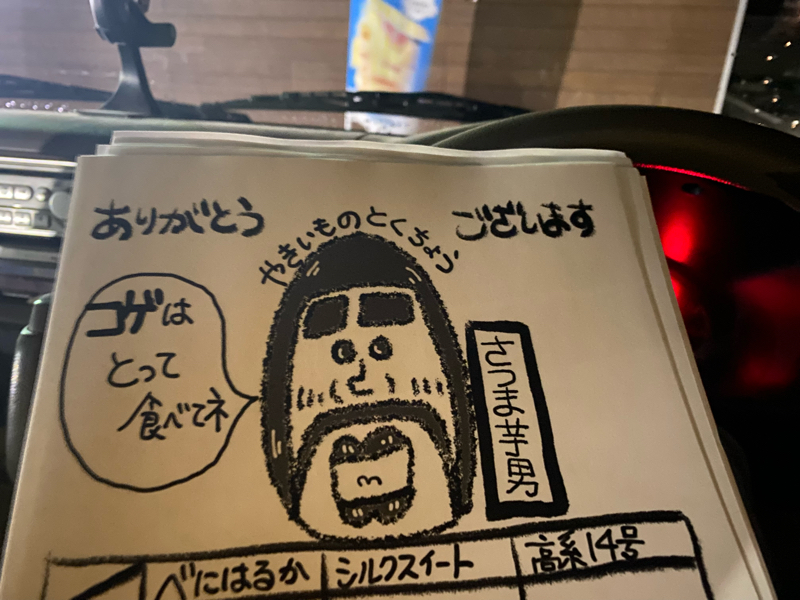 ありがとう
ございます
やきいものとくちょう
コゲは
とって
食べてネ
さつま芋男
べにはるか
シルクスイート
高系14号